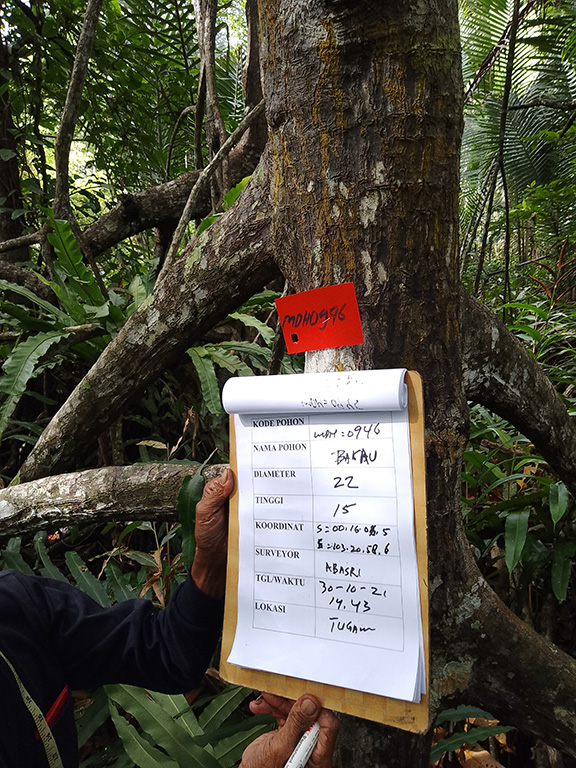 MDH0946
KODE POHON MDH=0946
NAMA POHON BAKAU
DIAMETER 22
TINGGI 15
KOORDINAT S=00.16.08.5
E=103.20.58.6
SURVEYOR ABASRI
TGL/WAKTU 30-10-21
14.43
LOKASI